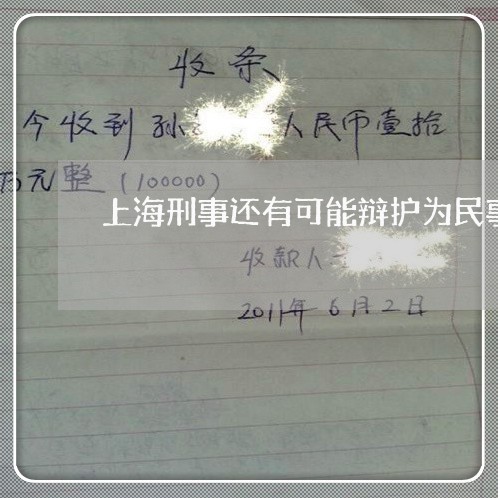 收条
今收到孙 人民币壹拾
万元整（100000）
上海刑事还有可能辩护为民事
收款人
2011年6月2日